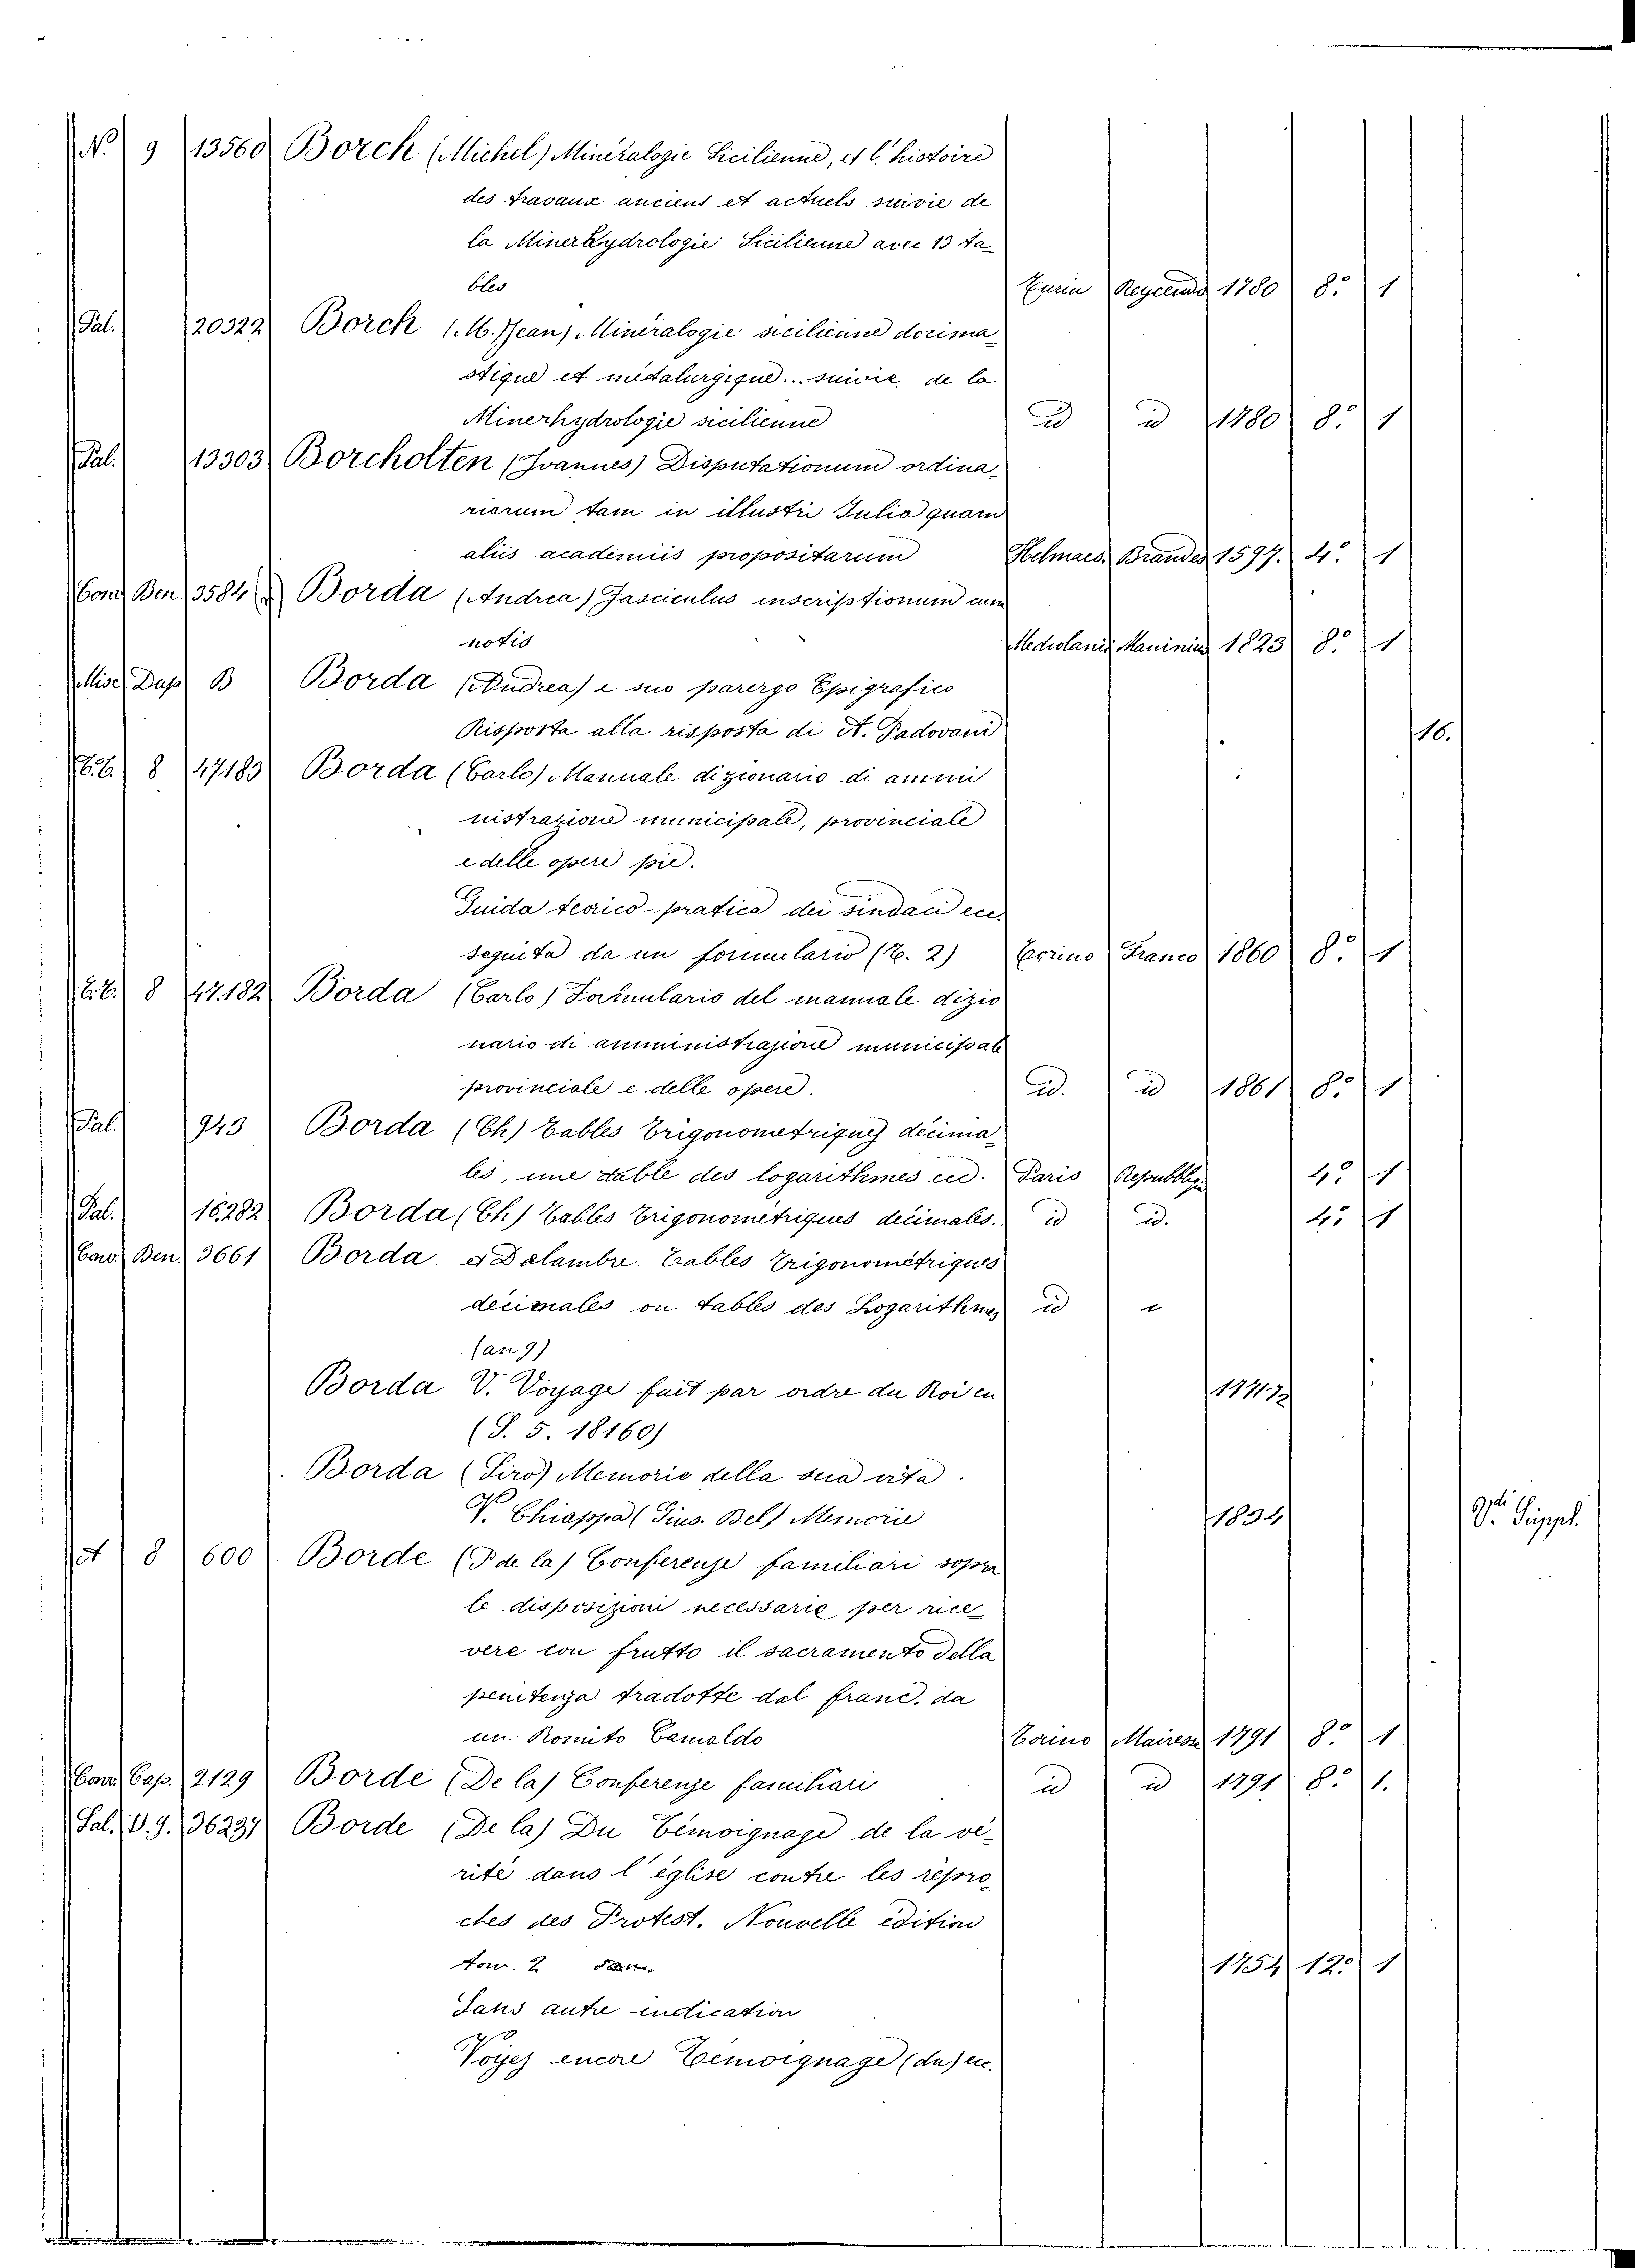 N. 9 13560 Borch (Michel) Minéralogie Sicilienne, et l'histoire
des travaux anciens et actuels suivie de
la Minerhydrologie Sicilienne avec 13 ta-
bles Turin Reycends 1780 8.° 1
Pal. 20322 Borch (M. Jean) Minéralogie sicilienne docima-
stique et métalurgique... suivie de la
Minerhydrologie sicilienne id id 1780 8.° 1
Pal. 13303 Borcholten (Joannes) Disputationum ordina-
riarum tam in illustri Julia quam
aliis academiis propositarum Helmaes. Brandes 1597. 4.° 1
Conv Ben 3584 Borda (Andrea) Fasciculus inscriptionum cum
notis Mediolanii Maninini 1823 8.° 1
Misc Dup B Borda (Andrea) e suo parergo Epigrafico
Risposta alla risposta di A. Padovani 16.
E.E. 8 47183 Borda (Carlo) Manuale dizionario di ammi
nistrazione municipale, provinciale
e delle opere pie.
Guida teorico-pratica dei sindaci ecc.
seguita da un formulario (E. 2) Torino Franco 1860 8.° 1
E.E. 8 47.182 Borda (Carlo) Formulario del manuale dizio
nario di amministrazione municipale
provinciale e delle opere. id. id 1861 8.° 1
Pal. 943 Borda (Ch) Tables Trigonometriques décima-
les, une table des logarithmes ecc. Paris Repubbliq 4.° 1
Pal. 16282 Borda (Ch) Tables Trigonométriques décimales. id id. 4.° 1
Conv. Ben. 3661 Borda et Delambre. Tables Trigonométriques
décimales ou tables des Logarithmes id
(an 9)
Borda V. Voyage fait par ordre du Roi en 1771.72
(S. 5. 18160)
Borda (Siro) Memorie della sua vita.
V. Chiappa (Gius. Bel) Memorie 1834 V. di Suppl.
A 8 600 Borde (P de la) Conferenze familiari sopra
le disposizioni necessarie per rice-
vere con frutto il sacramento della
penitenza tradotte dal franc. da
un Romito Camaldo Torino Mairesse 1791 8.° 1
Conv Cap. 2129 Borde (De la) Conferenze familiari id id 1791 8.° 1.
Sal. V. 9. 36237 Borde (De la) Du Témoignage de la vé-
rité dans l'église contre les repro-
ches des Protest. Nouvelle édition
tom. 2 1754 12.° 1
Sans autre indication
Voyez encore Témoignage (du) ecc.